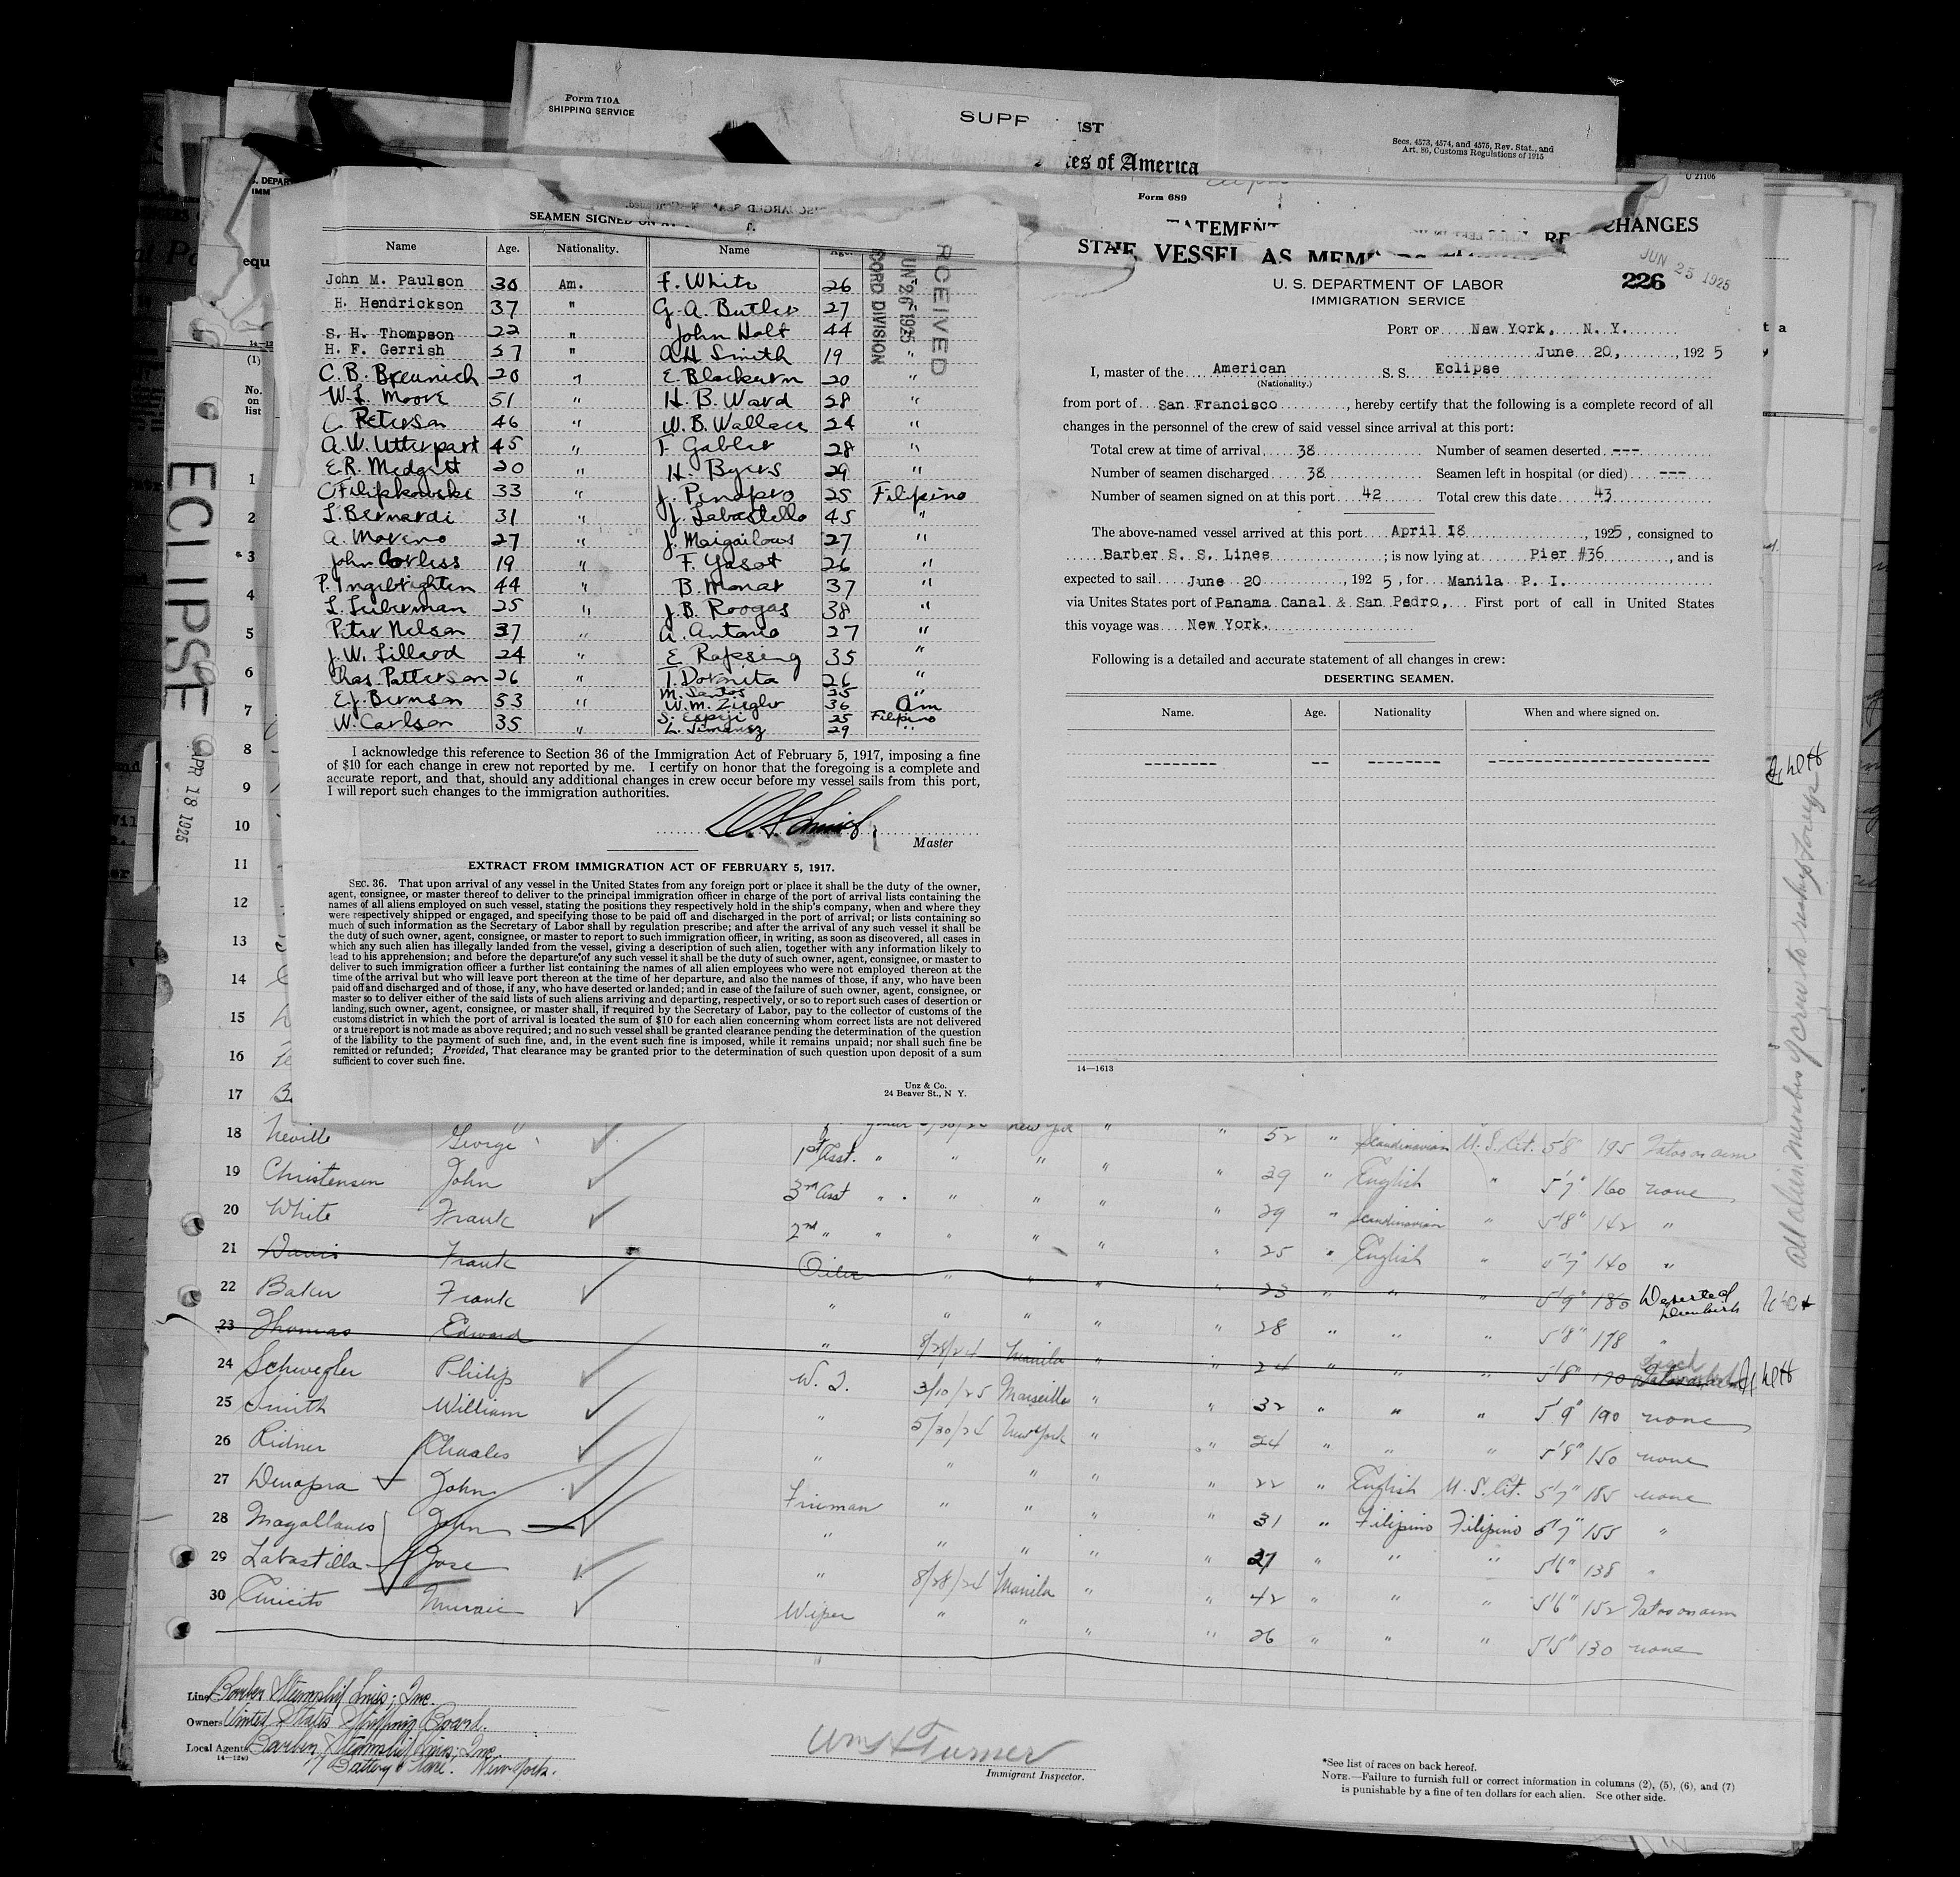 Form 710A
SHIPPING SERVICE
SUPP
IST
es of America
Secs. 4573, 4574, and 4575, Rev. Stat., and
Art. 86, Customs Regulations of 1915
U 21106
SEAMEN SIGNED ON AT
Name Age. Nationality. Name Age.
John M. Paulson 30 Am. F. White 26 "
H. Hendrickson 37 " G. A. Butler 27 "
S. H. Thompson 22 " John Holt 44 "
H. F. Gerrish 57 " A H Smith 19 "
C. B. Breunich 20 " E. Blackurn 20 "
W. L. Moore 51 " H. B. Ward 28 "
C. Peterson 46 " W. B. Wallace 24 "
A. W. Utterpart 45 " F. Gabler 28 "
E R. Medgett 20 " H. Byers 29 "
C Filipkowski 33 " J. Penapro 25 Filipino
L. Bernardi 31 " J. Labastello 45 "
A. Moreno 27 " J. Maigailous 27 "
John Corliss 19 " F. Yasot 26 "
P. Ingebrighten 44 " B. Monat 37 "
L. Luberman 25 " J. B. Roogas 38 "
Peter Nelson 37 " A. Antonio 27 "
J. W. Lillard 24 " E. Rapsing 35 "
Chas. Patterson 26 " T. Dornita 26 "
M. Santos 25 "
E. J. Bernson 53 " W. M. Ziegler 36 Am
S. Espeji 25 Filipino
W. Carlson 35 " L. Jimenez 29 "
RECEIVED
JUN 26 1925
RECORD DIVISION
I acknowledge this reference to Section 36 of the Immigration Act of February 5, 1917, imposing a fine
of $10 for each change in crew not reported by me. I certify on honor that the foregoing is a complete and
accurate report, and that, should any additional changes in crew occur before my vessel sails from this port,
I will report such changes to the immigration authorities.
Master
EXTRACT FROM IMMIGRATION ACT OF FEBRUARY 5, 1917.
SEC. 36. That upon arrival of any vessel in the United States from any foreign port or place it shall be the duty of the owner,
agent, consignee, or master thereof to deliver to the principal immigration officer in charge of the port of arrival lists containing the
names of all aliens employed on such vessel, stating the positions they respectively hold in the ship's company, when and where they
were respectively shipped or engaged, and specifying those to be paid off and discharged in the port of arrival; or lists containing so
much of such information as the Secretary of Labor shall by regulation prescribe; and after the arrival of any such vessel it shall be
the duty of such owner, agent, consignee, or master to report to such immigration officer, in writing, as soon as discovered, all cases in
which any such alien has illegally landed from the vessel, giving a description of such alien, together with any information likely to
lead to his apprehension; and before the departure of any such vessel it shall be the duty of such owner, agent, consignee, or master to
deliver to such immigration officer a further list containing the names of all alien employees who were not employed thereon at the
time of the arrival but who will leave port thereon at the time of her departure, and also the names of those, if any, who have been
paid off and discharged and of those, if any, who have deserted or landed; and in case of the failure of such owner, agent, consignee, or
master so to deliver either of the said lists of such aliens arriving and departing, respectively, or so to report such cases of desertion or
landing, such owner, agent, consignee, or master shall, if required by the Secretary of Labor, pay to the collector of customs of the
customs district in which the port of arrival is located the sum of $10 for each alien concerning whom correct lists are not delivered
or a true report is not made as above required; and no such vessel shall be granted clearance pending the determination of the question
of the liability to the payment of such fine, and, in the event such fine is imposed, while it remains unpaid; nor shall such fine be
remitted or refunded; Provided, That clearance may be granted prior to the determination of such question upon deposit of a sum
sufficient to cover such fine.
Unz & Co.
24 Beaver St., N Y.
Form 689
CHANGES
VESSEL AS
JUN 25 1925
226
U. S. DEPARTMENT OF LABOR
IMMIGRATION SERVICE
PORT OF New York, N. Y.
June 20, , 192 5
I, master of the American S. S. Eclipse
(Nationality.)
from port of San Francisco , hereby certify that the following is a complete record of all
changes in the personnel of the crew of said vessel since arrival at this port:
Total crew at time of arrival 38 Number of seamen deserted ---
Number of seamen discharged 38 Seamen left in hospital (or died) ---
Number of seamen signed on at this port 42 Total crew this date 43
The above-named vessel arrived at this port April 18 , 1925 , consigned to
Barber S. S. Lines ; is now lying at Pier #36 , and is
expected to sail June 20 , 192 5 , for Manila P. I.
via Unites States port of Panama Canal & San Pedro, First port of call in United States
this voyage was New York.
Following is a detailed and accurate statement of all changes in crew:
DESERTING SEAMEN.
Name. Age. Nationality When and where signed on.
14—1613
ECLIPSE
APR 18 1925
(1)
No.
on
list
1
2
*3
4
5
6
7
8
9
10
11
12
13
14
15
16
17
18 Neville George 52 " Scandinavian U. S. Cit. 5'8 195 Tatoo on arm
19 Christensen John 1st Asst. " " " " " 29 " English " 5'7" 160 none
20 White Frank 3rd Asst " " " " " 29 " Scandinavian " 5'8" 142 "
21 Davis Frank 2nd " " " " " " 25 " English " 5'7" 140 "
22 Baker Frank Oiler " " " " 23 " " " 5'9" 180 Deserted
23 Thomas Edward " " " " " 28 " " " 5'8" 178 "
24 Schwegler Philip " 8/28/24 Manila " " 24 " " " 5'8" 170
25 Smith William W. T. 3/10/25 Marseilles " " 32 " " " 5'9" 190 none
26 Ridner Charles " 5/30/24 New York " " 24 " " " 5'8" 150 none
27 Denapra John " " " " " 22 " English U. S. Cit. 5'7" 185 none
28 Magallanes John Fireman " " " " 31 " Filipino Filipino 5'7" 155 "
29 Labastilla Jose " " " " " 27 " " " 5'6" 138 "
30 " 8/28/24 Manila " " 42 " " " 5'6" 152 Tatoo on arm
Wiper " " " " 26 " " " 5'5" 130 none
all alien members of crew to reship foreign
Line Barber Steamship Lines, Inc.
Owners United States Shipping Board.
Local Agents Barber Steamship Lines, Inc.
14—1240
17 Battery Place. New York.
Wm H Turner
Immigrant Inspector.
*See list of races on back hereof.
NOTE.—Failure to furnish full or correct information in columns (2), (5), (6), and (7)
is punishable by a fine of ten dollars for each alien. See other side.